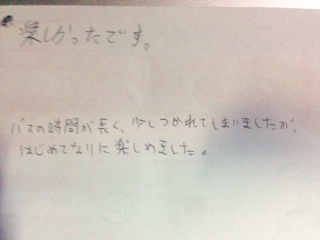 楽しかったです。
バスの時間が長く、少しつかれてしまいましたが、
はじめてなりに楽しめました。